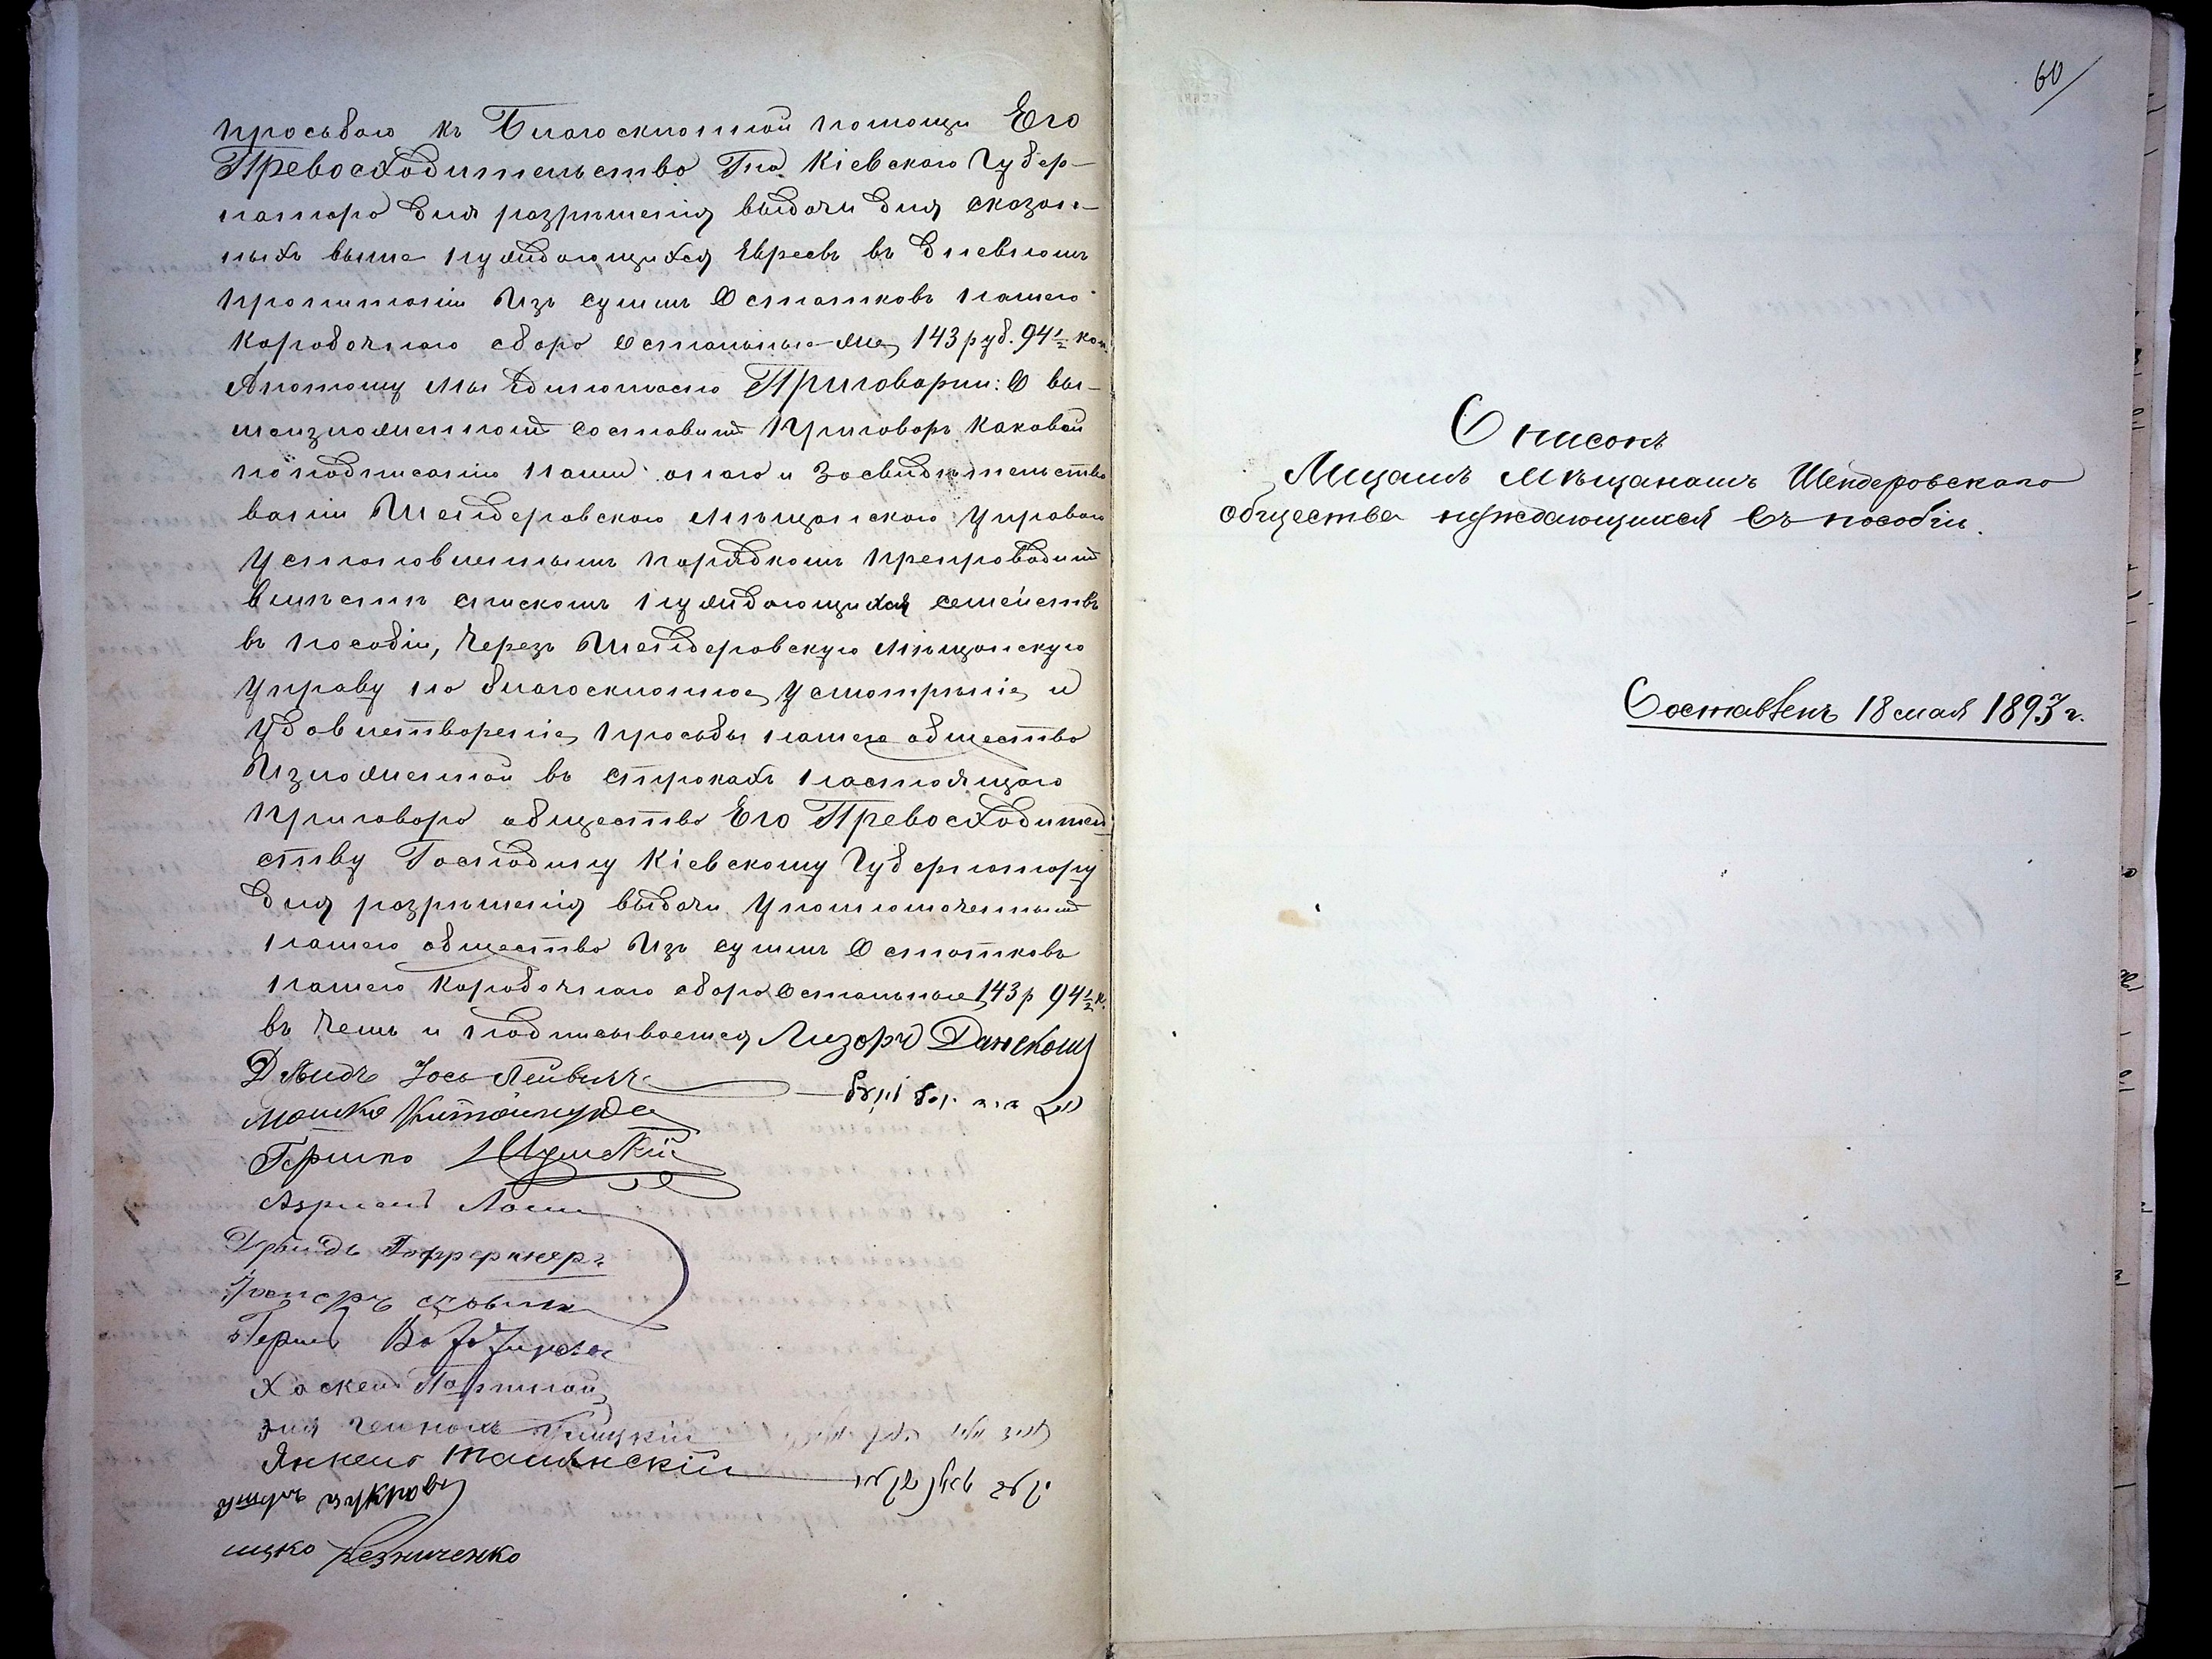 просьбою къ Благосклонной помощи Его
Превосходительства Гна Кіевскаго Губер-
натора для разрѣшенія выдачи для сказан-
ныхъ выше нуждающихся Евреевъ въ дневномъ
пропитаніи Изъ суммъ Остатковъ нашего
Коробочнаго сбора Остальные же 143 руб. 94½ коп.
Апотому Мы Единогласно Приговорили: О вы-
шеизложенномъ составить Приговоръ каковой
по подписаніи нами онаго и Засвидѣтельство
ваніи Шендеровскою Мѣщанскою Управою
Установленнымъ порядкомъ препроводить
вмѣстѣ спискомъ нуждающихся семействъ
въ пособіи, Через Шендеровскую Мѣщанскую
Управу на благосклонное Усмотрѣніе и
Удовлетвореніе просьбы нашего общества
Изложенной въ строкахъ настоящаго
приговора общества Его Превосходитель
ству Господину Кіевскому Губернатору
для разрѣшенія выдачи Уполномоченнымъ
нашего общества Изъ суммъ Остатковъ
нашего Коробочнаго сбора Остальные 143 р 94½ к.
въ Чемъ и подписываемся Лизоръ
Мошко
Гершко
Азриель
Гершъ
Хаскель
Янкель Тальянскій
ицко Резниченко
60
Списокъ
Лицамъ Мѣщанамъ Шендеровскаго
общества нуждающимся въ пособіи.
Составленъ 18 мая 1893 г.